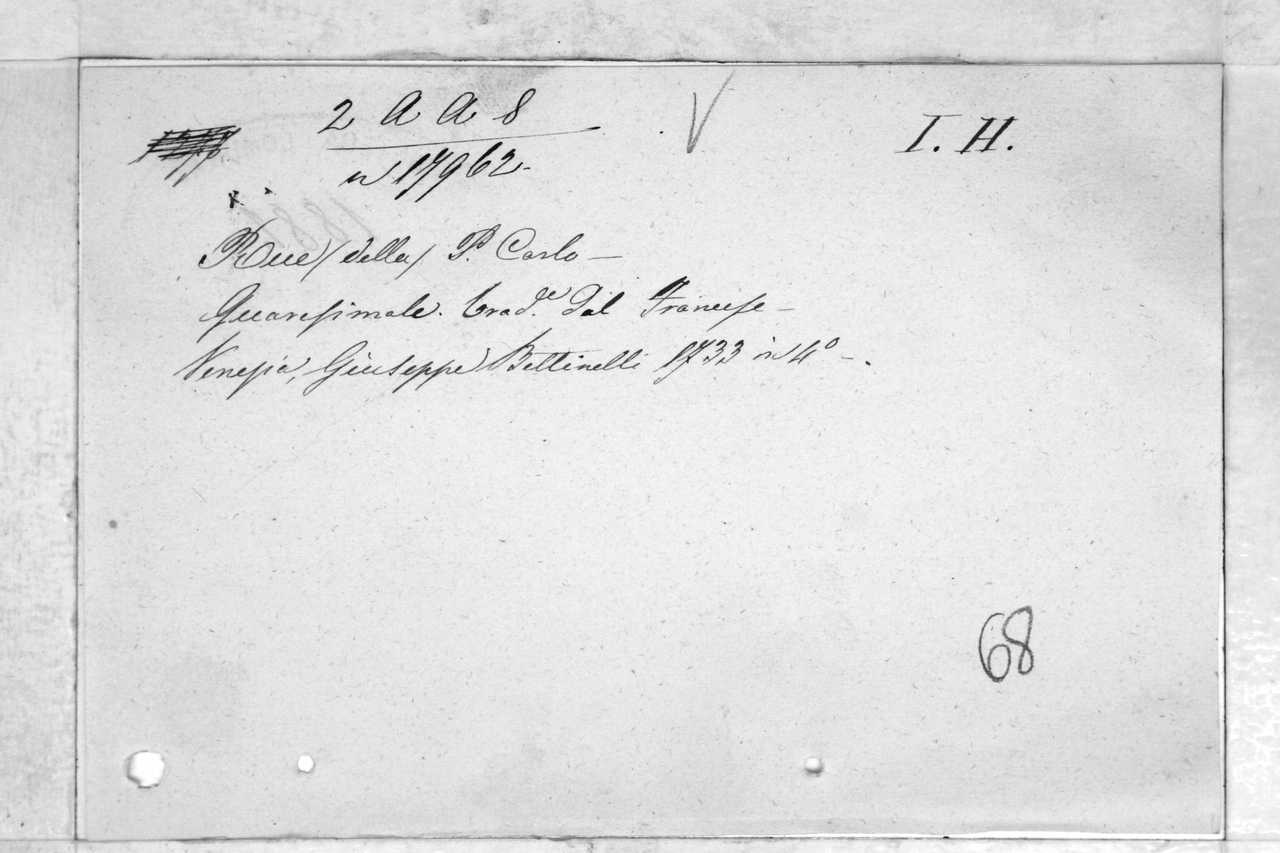 2 A A 8
V
I. H.
n 17962.
Rue (della) P. Carlo —
Quaresimale. Trad.e dal Francese —
Venezia, Giuseppe Bettinelli 1733 in 4º —.
68